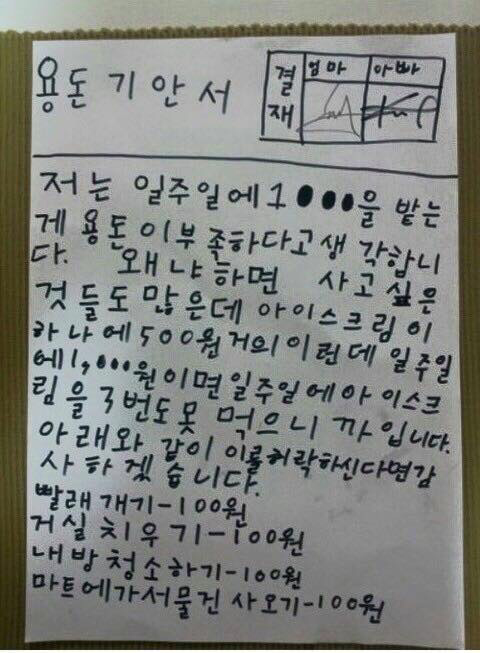 용돈 기안서
결재 엄마 아빠
저는 일주일에 1000을 받는
게 용돈이 부족하다고 생각합니
다. 왜냐하면 사고 싶은
것들도 많은데 아이스크림이
하나에 500원 거의 이런데 일주일
에 1,000원이면 일주일에 아이스크
림을 3번도 못 먹으니까입니다.
아래와 같이 이를 허락하신다면 감
사하겠습니다.
빨래 개기-100원
거실 치우기-100원
내 방 청소하기-100원
마트에 가서 물건 사오기-100원